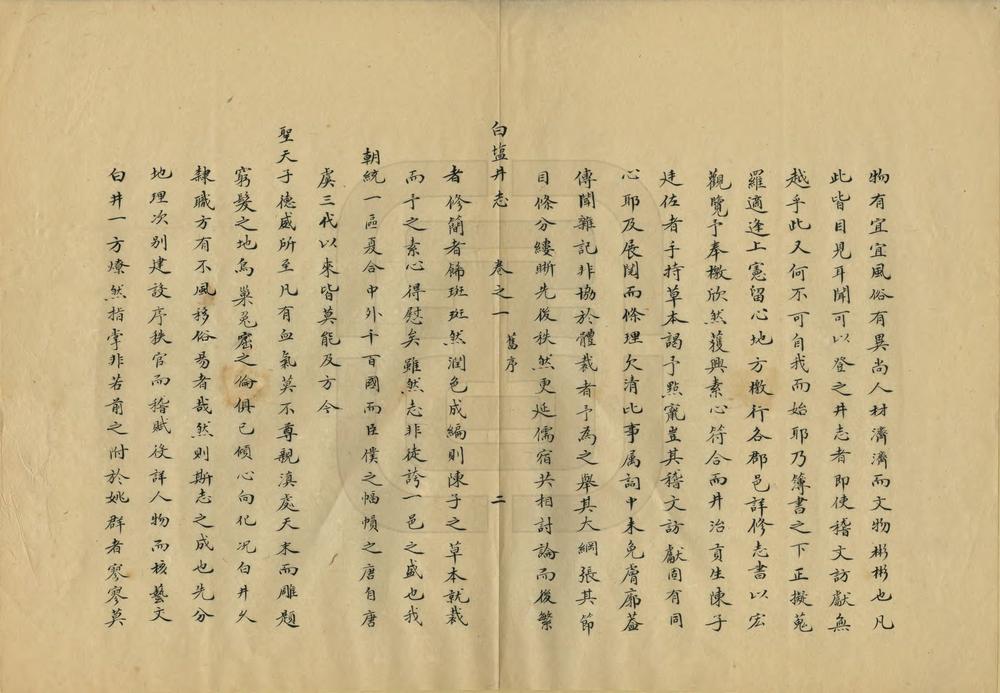 物有宜宜風俗有異尚人材濟濟而文物彬彬也凡
此皆目見耳聞可以登之井志者即使稽文訪獻無
越乎此又何不可自我而始耶乃簿書之下正擬蒐
羅適逢上憲留心地方檄行各郡邑詳修志書以宏
觀覽予奉檄欣然獲興素心符合而井治貢生陳子
廷佐者手持草本謁予點竄豈其稽文訪獻固有同
心耶及展閱而條理欠清比事属詞中未免膚廓葢
傳聞雜記非協於體裁者予為之舉其大綱張其節
目條分縷晰先後秩然更延儒宿共相討論而後繁
白塩井志 卷之一 舊序 二
者修簡者歸斑斑然潤色成編則陳子之草本就裁
而予之素心得慰矣雖然志非徒誇一邑之盛也我
朝統一區夏合中外千百國而臣僕之幅幀之唐自唐
虞三代以來皆莫能及方今
聖天子德威所至凡有血氣莫不尊親滇處天末而雕題
窮髮之地烏巢兎窟之倫俱已傾心向化况白井乆
隸職方有不風移俗易者哉然則斯志之成也先分
地理次別建設序秩官而稽賦役詳人物而核藝文
白井一方燎然指掌非若前之附於姚群者寥寥莫